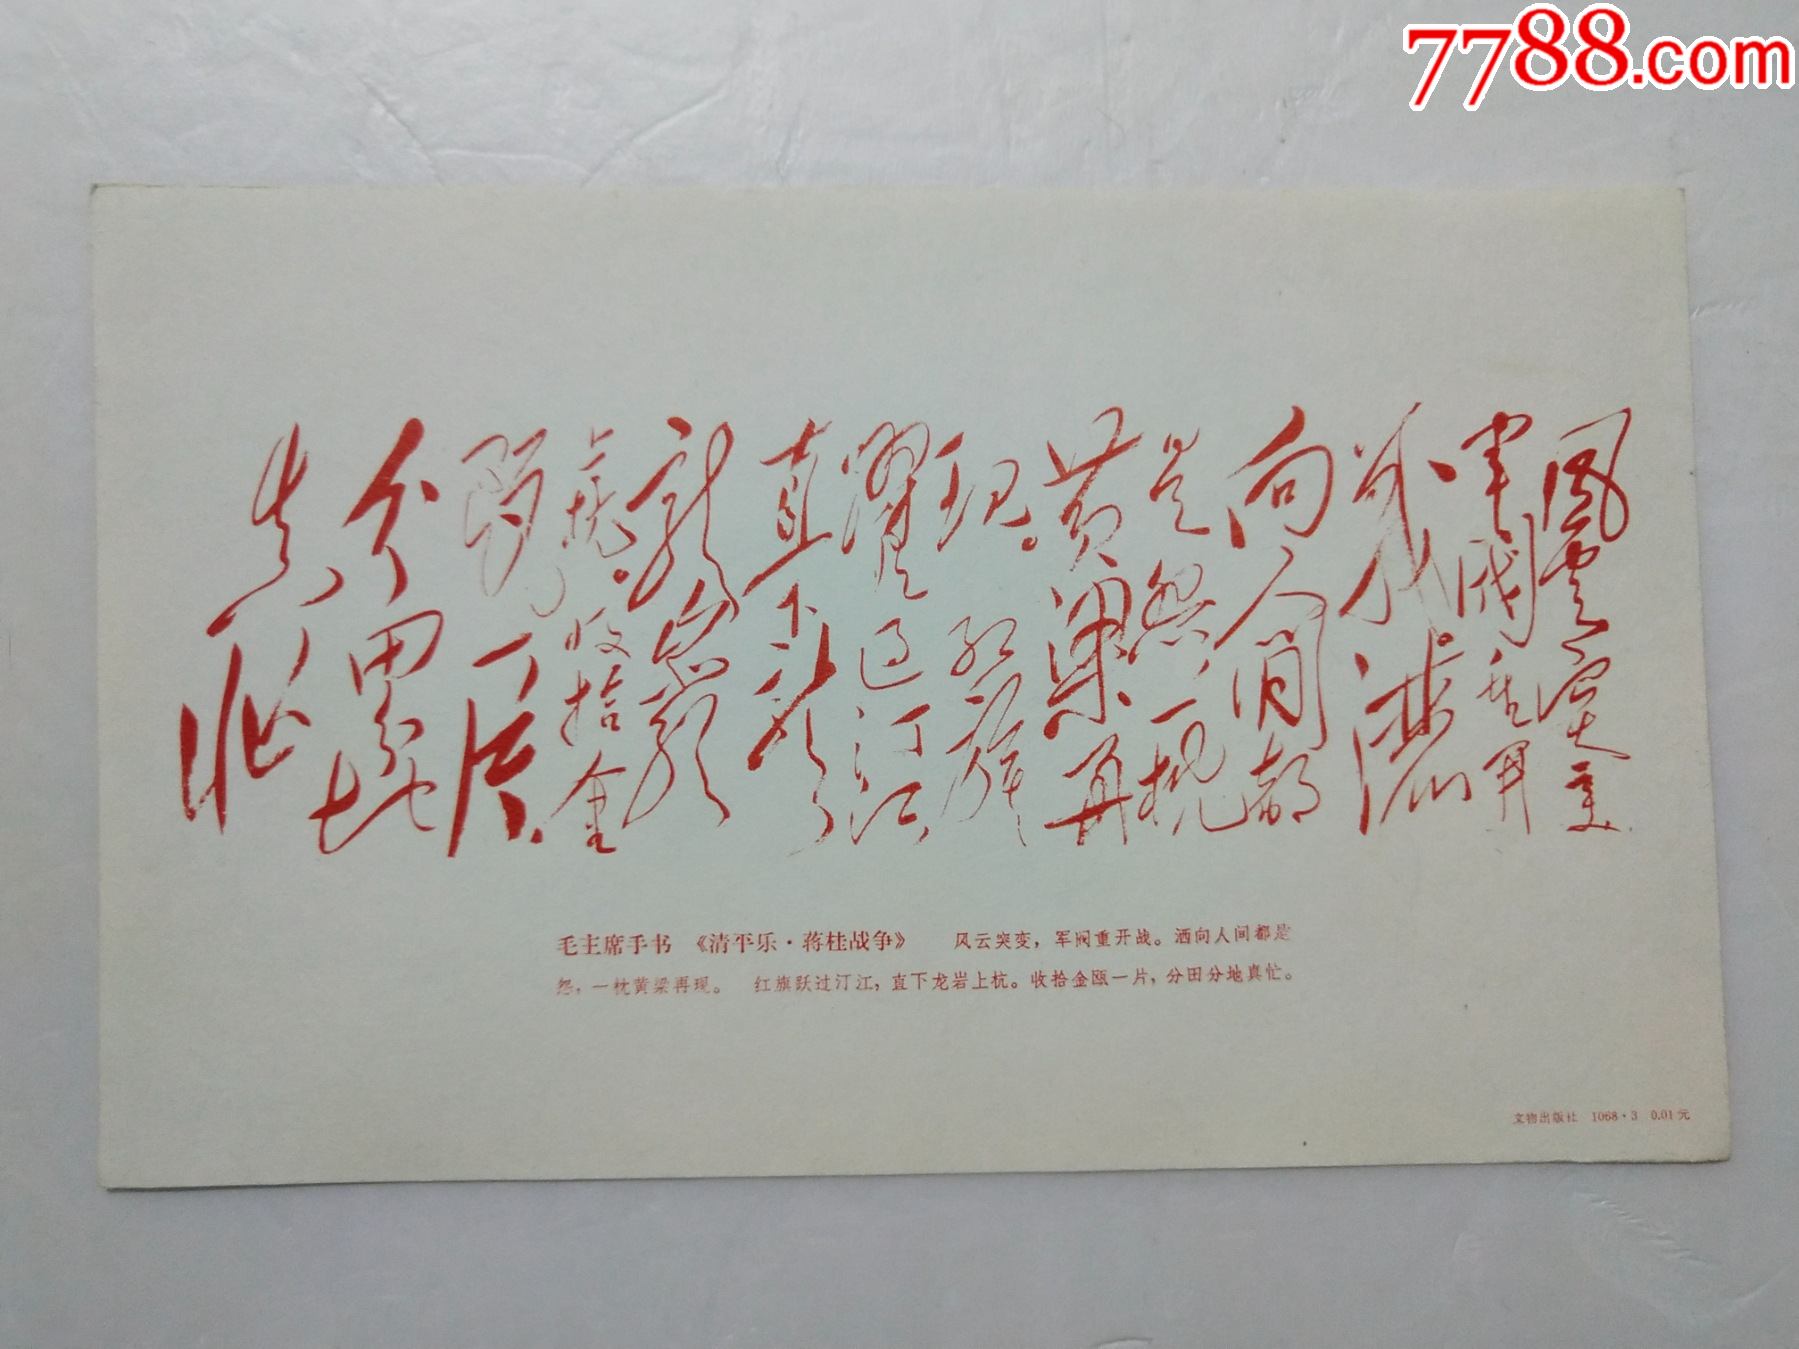 7788.com
風雲突变
軍閥重開
戰灑
向人間都
是怨，一枕
黄粱再
現。红旗
躍过汀江
直下
龍巖
上杭。收拾金
甌一片，
分田分地
真忙
毛主席手书 《清平乐·蒋桂战争》 风云突变，军阀重开战。洒向人间都是
怨，一枕黄粱再现。 红旗跃过汀江，直下龙岩上杭。收拾金瓯一片，分田分地真忙。
文物出版社 1068·3 0.01元